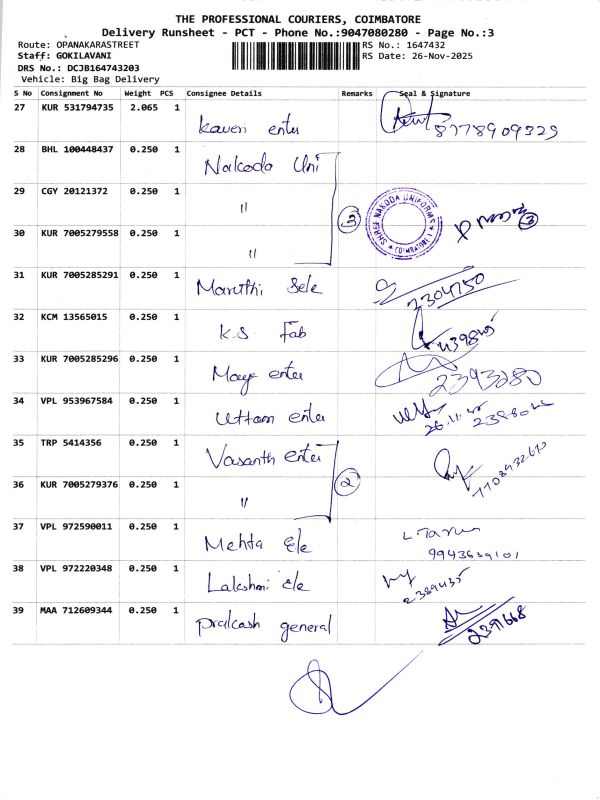 THE PROFESSIONAL COURIERS, COIMBATORE
Delivery Runsheet - PCT - Phone No.:9047080280 - Page No.:3
Route: OPANAKARASTREET RS No.: 1647432
Staff: GOKILAVANI RS Date: 26-Nov-2025
DRS No.: DCJB164743203
Vehicle: Big Bag Delivery
S No Consignment No Weight PCS Consignee Details Remarks Seal & Signature
27 KUR 531794735 2.065 1 Kaveri enter 8778909329
28 BHL 100448437 0.250 1 Nakoda Uni
29 CGY 20121372 0.250 1 " 3 SHREE NAKODA UNIFORMS COIMBATORE
30 KUR 7005279558 0.250 1 "
31 KUR 7005285291 0.250 1 Maruthi Sele 2304750
32 KCM 13565015 0.250 1 K.S Fab
33 KUR 7005285296 0.250 1 Mayf enter 2393280
34 VPL 953967584 0.250 1 Uttam enter
35 TRP 5414356 0.250 1 Vasanth enter
36 KUR 7005279376 0.250 1 " 2
37 VPL 972590011 0.250 1 Mehta Ele 9943639101
38 VPL 972220348 0.250 1 Lakshmi Ele 2389435
39 MAA 712609344 0.250 1 Prakash general 2391668